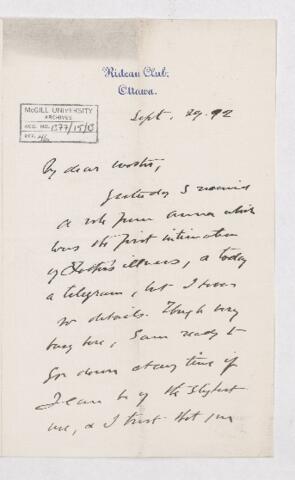 Rideau Club,
Ottawa.
McGILL UNIVERSITY
ARCHIVES
ACC. NO. 1577/15/13
REF.
Sept. 29. 92
My dear
Yesterday I received
a note from Anna which
was the first intimation
of illness, & today
a telegram, but I have
no details. Though very
busy here, I am ready to
go down at any time if
I can be of the slightest
use, & I trust that you